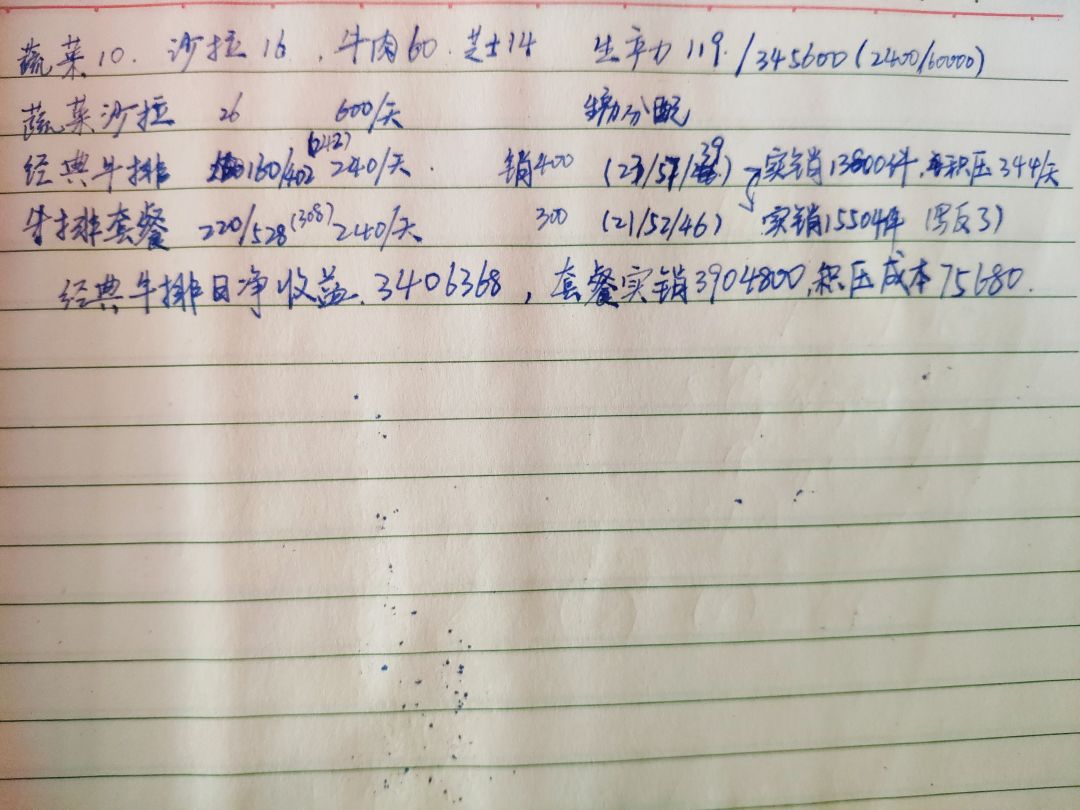 蔬菜10. 沙拉16 . 牛肉60. 芝士14 生产力119. /345600(2400/60000)
蔬菜沙拉 26 600/天 分配
经典牛排 160/402 (242) 240/天. 销400 (23/57/39) 实销13800件, 积压344/天
牛排套餐 220/528 (308) 240/天 300 (21/52/46) 实销15504件 (写反了)
经典牛排日净收益. 3406368, 套餐实销3904800,积压成本75680.